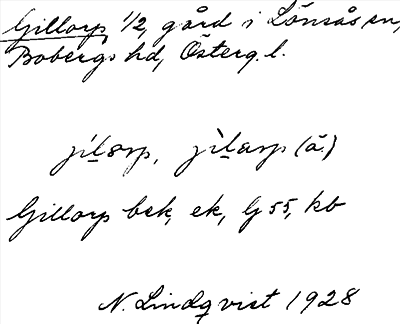 Gillorp 1/2, gård i Lönsås sn,
Bobergs hd, Österg. l.
jílorp, jìlarp (ä.)
Gillorp bek, ek, lg 55, kb
N. Lindqvist 1928